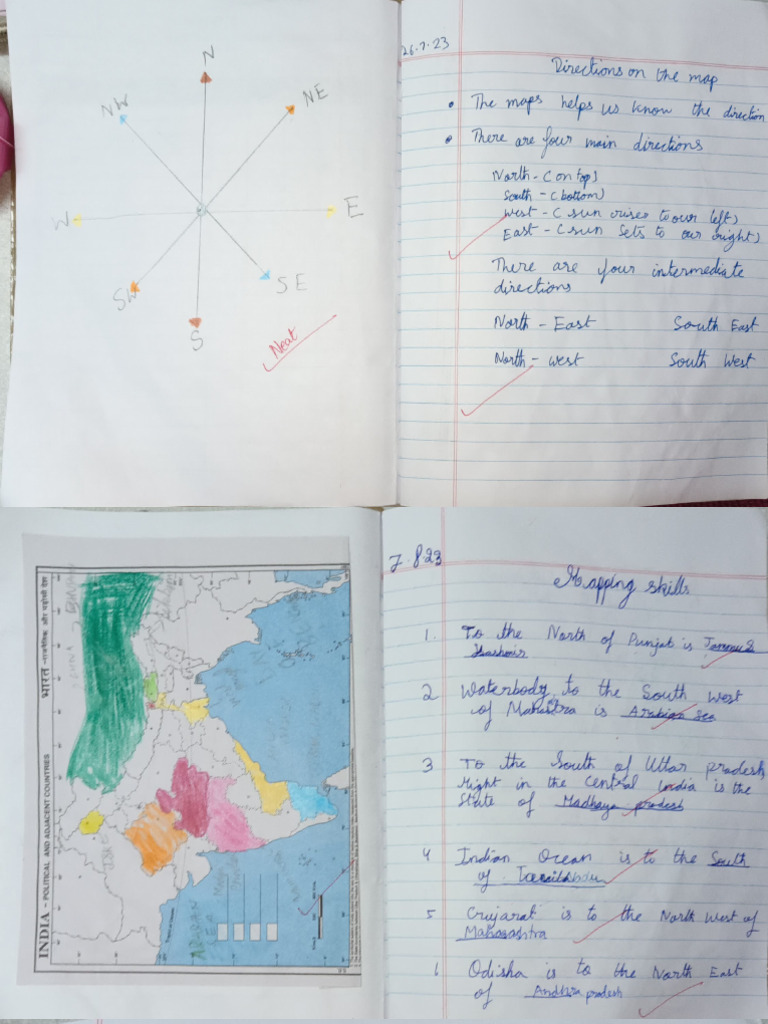 N
NW
NE
W
E
SW
SE
S
Neat
26.7.23
Directions on the map
• The maps helps us know the direction
• There are four main directions
North - (on top)
South - (bottom)
West - (sun rises to our left)
East - (sun sets to our right)
There are four intermediate
directions
North - East South East
North - West South West
भारत - राजनैतिक और पड़ोसी देश
INDIA - POLITICAL AND ADJACENT COUNTRIES
CHINA
ARABIAN
SEA
7.8.23
Mapping skills
1. To the North of Punjab is Jammu &
Kashmir
2 Waterbody to the South West
of is Arabian Sea
3 To the South of Uttar pradesh,
Right in the Central India is the
State of Madhaya pradesh
4 Indian Ocean is to the South
of
5 Gujarat is to the North West of
Maharashtra
6 Odisha is to the North East
of Andhra pradesh